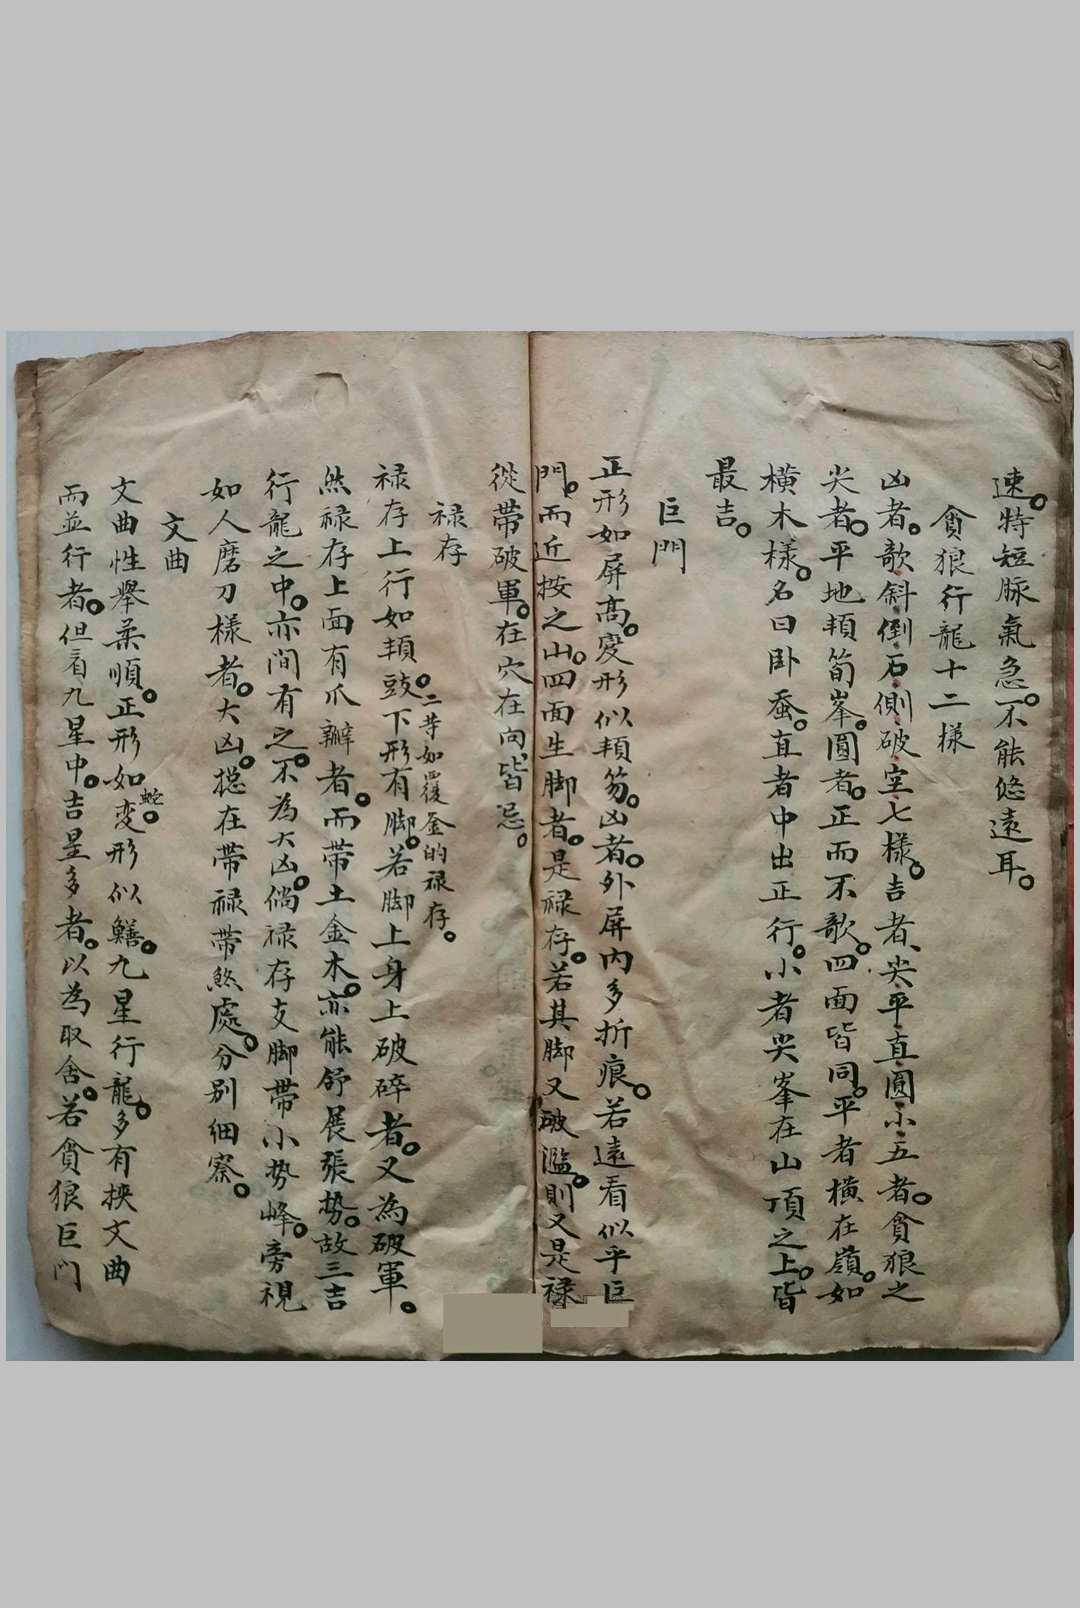 速。特短脉氣急。不能悠遠耳。
貪狼行龍十二樣
凶者。欹斜倒石側破空七樣。吉者、尖平直圓小五者。貪狼之
尖者。平地頓筍峯。圓者。正而不欹。四面皆同。平者橫在嶺。如
橫木樣。名曰卧蚕。直者中出正行。小者尖峯在山頂之上。皆
最吉。
巨門
正形如屏高。変形似頓笏。凶者。外屏内多折痕。若遠看似乎巨
門。而近按之山。四面生脚者。是禄存。若其脚又破濫。則又是禄
從帶破軍。在穴在向、皆忌。
禄存
二莭如覆釜的禄存。
禄存上行如頓鼓。下形有脚。若脚上身上破碎者。又為破軍。
然禄存上面有爪瓣者。而帶土金木。亦能舒展張势。故三吉
行龍之中。亦间有之。不為大凶。倘禄存支脚帶小势峰。旁視
如人磨刀樣者。大凶。揔在帶禄帶煞處。分别细察。
文曲
文曲性舉柔順。正形如蛇。変形似鱔。九星行龍。多有挾文曲
而並行者。但看九星中。吉星多者。以為取舍。若貪狼巨门